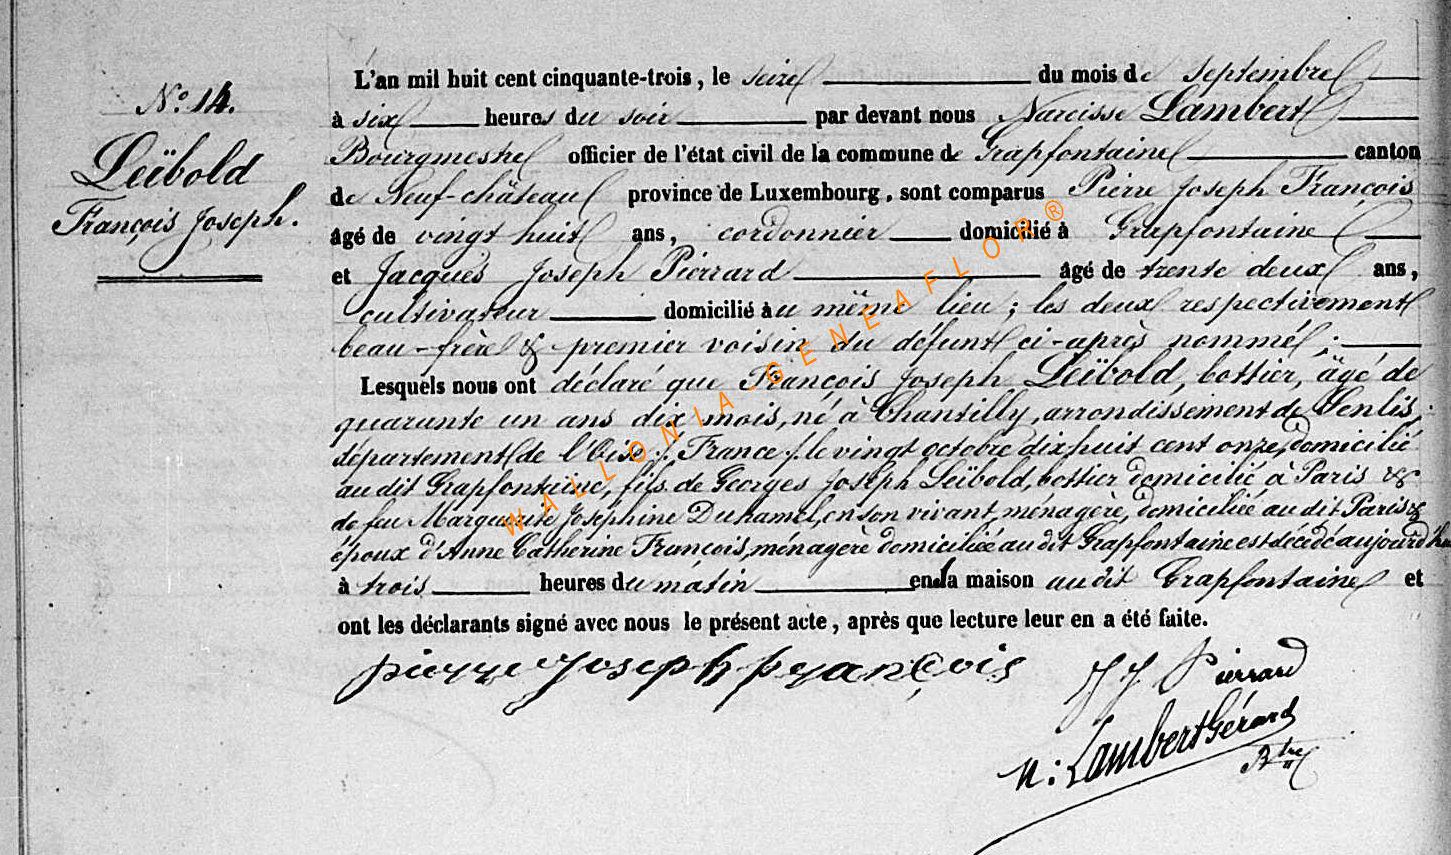 N.º 14.
Leïbold
François Joseph.
L'an mil huit cent cinquante-trois, le seize du mois de septembre
à six heures du soir par devant nous Narcisse Lambert
Bourgmestre officier de l'état civil de la commune de Grapfontaine canton
de Neuf-château province de Luxembourg, sont comparus Pierre Joseph François
âgé de vingt huit ans, cordonnier domicilié à Grapfontaine
et Jacques Joseph Pierrard âgé de trente deux ans,
cultivateur domicilié au même lieu ; les deux respectivement
beau-frère & premier voisin du défunt ci-après nommé ;
Lesquels nous ont déclaré que François Joseph Leïbold, bottier, âgé de
quarante un ans dix mois, né à Chantilly, arrondissement de Senlis,
département de l'Oise /. France /. le vingt octobre dix huit cent onze, domicilié
au dit Grapfontaine, fils de Georges Joseph Leïbold, bottier domicilié à Paris &
de feu Marguerite Joséphine Duhamel, en son vivant ménagère, domiciliée au dit Paris &
époux d'Anne Catherine François, ménagère domiciliée au dit Grapfontaine est décédé aujourd'hui
à trois heures du matin en la maison au dit Grapfontaine et
ont les déclarants signé avec nous le présent acte, après que lecture leur en a été faite.
pierre Joseph françois
J J Pierrard
N: Lambert Gérard
Btre
WALLONIA-GENEAFLOR®